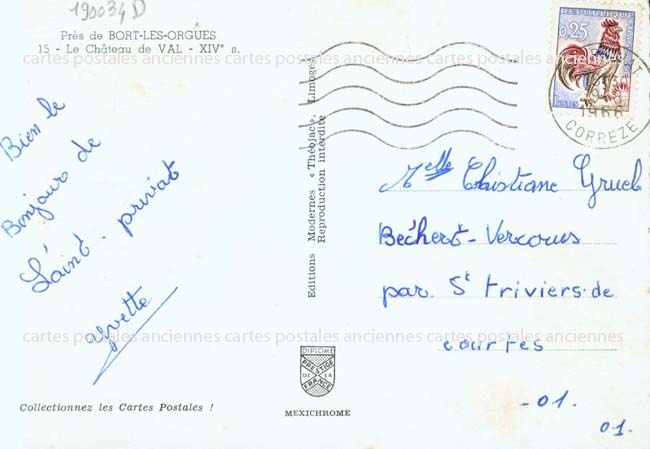 190034 D
Près de BORT-LES-ORGUES
15 - Le Château de VAL - XIVe s.
cartes postales anciennes cartes postales anciennes cartes postales anciennes
Bien le
Bonjour de
Saint-privat
Yvette
Editions Modernes « Théojac », Limoges
Reproduction Interdite
0,25
POSTES
1966
CORREZE
Melle Christiane Grueb
Bechert-Vercous
par St triviers-de
courtes
-01.
01.
cartes postales anciennes cartes postales anciennes cartes postales anciennes
DIPLOME
PRESTIGE
DE LA
FRANCE
Collectionnez les Cartes Postales !
MEXICHROME